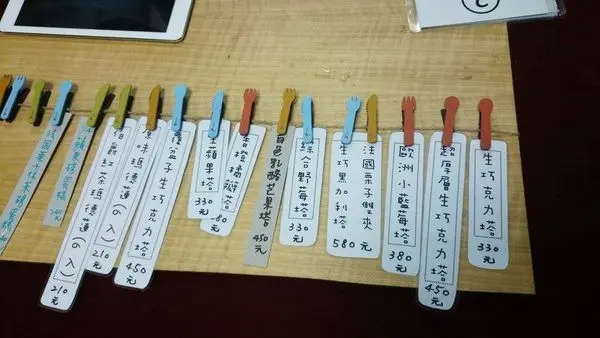 生巧克力塔
330元
超厚層生巧克力塔
450元
歐洲小藍莓塔
380元
法國栗子雙夾
生巧黑加利塔
580元
綜合野莓塔
330元
白色乳酪芒果塔
450元
香橙橘瓣塔
80元
蘋果塔
330元
盆子生巧克力塔
450元
原味瑪德蓮(入)
210元
伯爵紅茶瑪德蓮(入)
210元